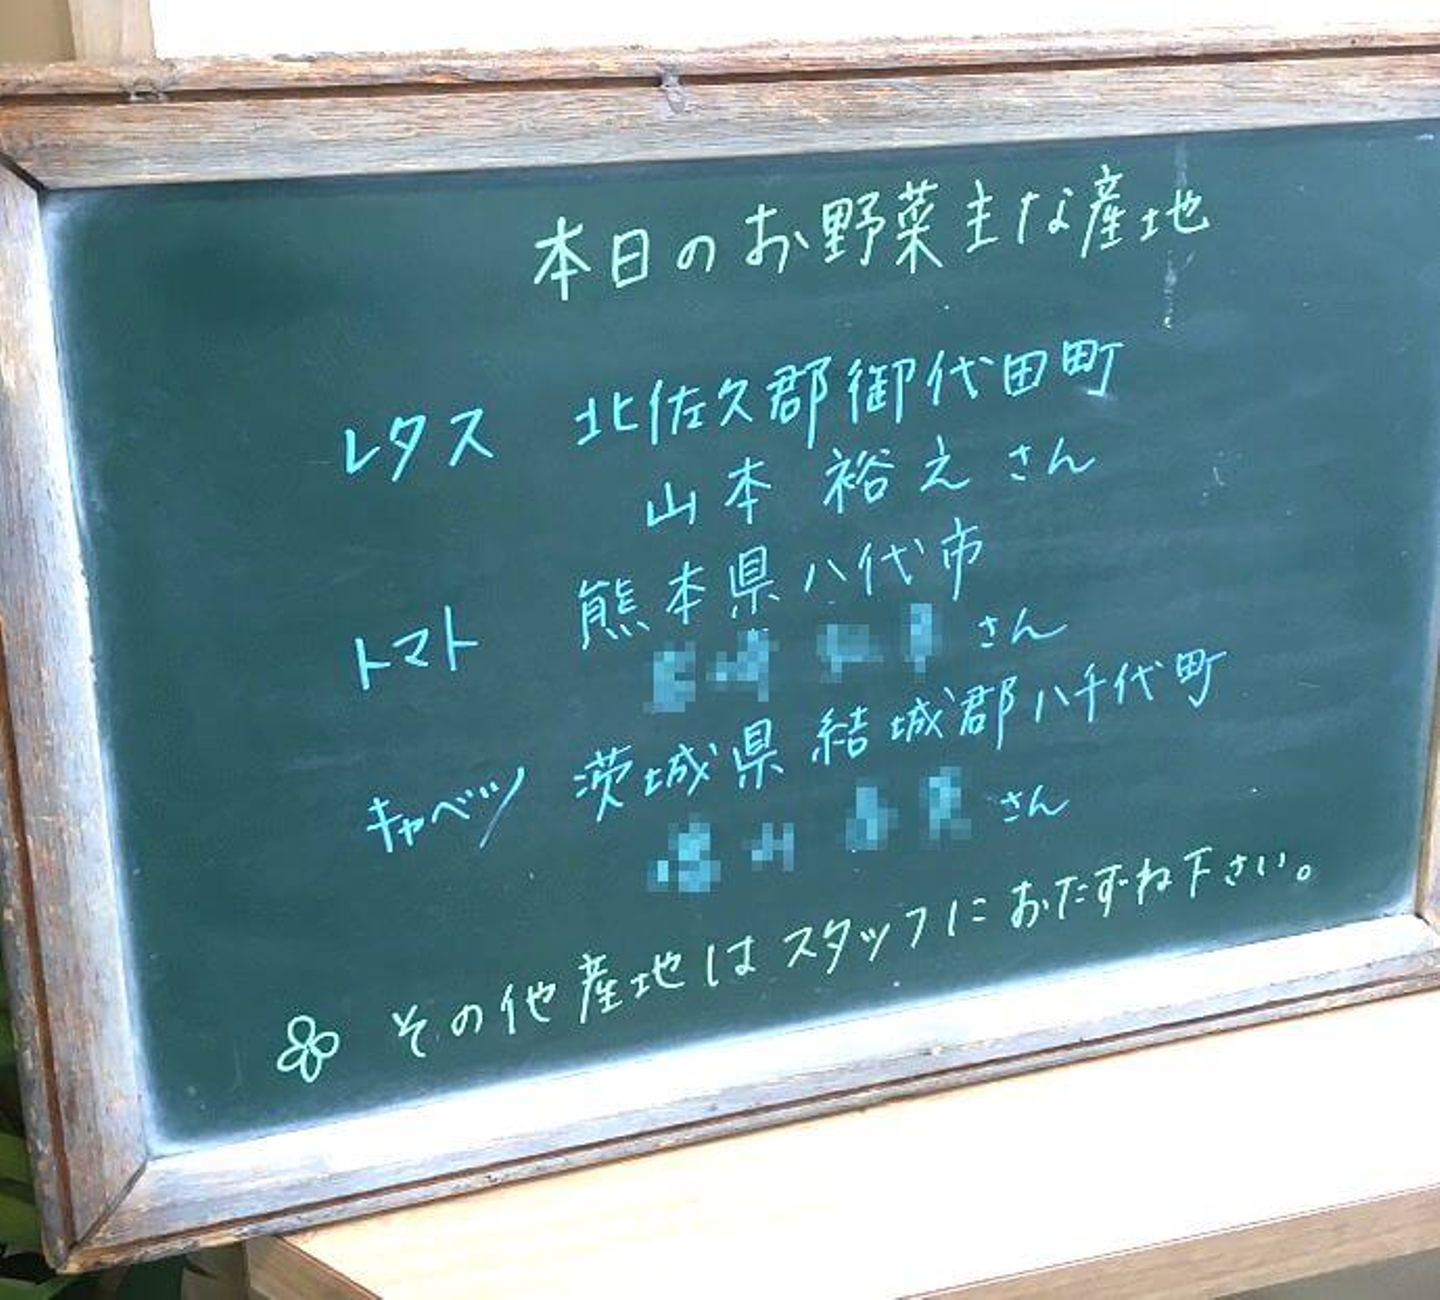 本日のお野菜主な産地
レタス 北佐久郡御代田町
山本 裕之さん
トマト 熊本県八代市
さん
キャベツ 茨城県結城郡八千代町
さん
その他産地はスタッフにおたずね下さい。